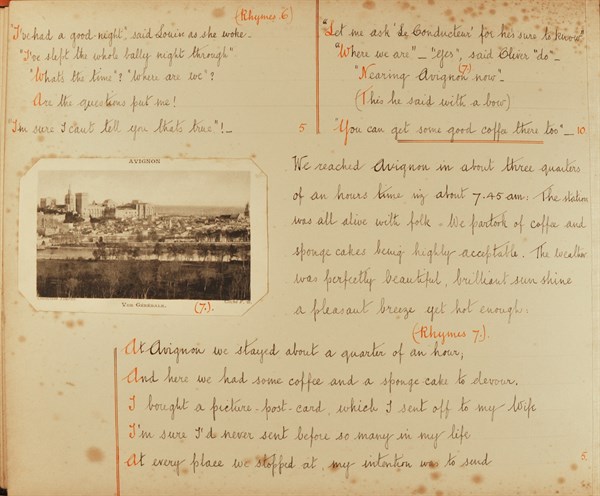 (Rhymes 6)
"I've had a good night", said Louis as she woke.
"I've slept the whole bally night through"
"What's the time"? "Where are we"?
Are the questions put me!
"I'm sure I can't tell you that's true"!_ 5
"Let me ask 'Le Conducteur' for he's sure to know"
"Where we are"_ "Yes", said Oliver "do"_
"Nearing Avignon now"_
(7.)
(This he said with a bow)
"You can get some good coffa there too"_ 10
AVIGNON
VUE GÉNÉRALE
(7.).
We reached Avignon in about three quarters
of an hours time viz about 7.45 am: The station
was all alive with folk. We partook of coffee and
sponge cakes being highly acceptable. The weather
was perfectly beautiful, brilliant sun shine
a pleasant breeze yet hot enough:
(Rhymes 7.)
At Avignon we stayed about a quarter of an hour;
And here we had some coffee and a sponge-cake to devour.
I bought a picture-post-card, which I sent off to my Wife
I'm sure I'd never sent before so many in my life
At every place we stopped at, my intention was to send 5.